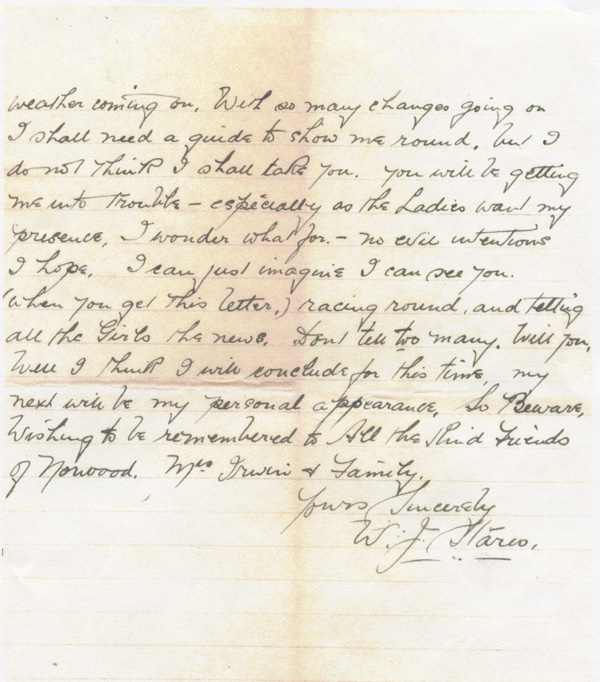 weather coming on. With so many changes going on
I shall need a guide to show me round. but I
do not think I shall take you. you will be getting
me into trouble – especially as the Ladies want my
presence, I wonder what for. – no evil intentions
I hope. I can just imagine I can see you.
(when you get this letter,) racing round, and telling
all the Girls the news. Dont tell too many. Will you,
Well I think I will conclude for this time, my
next will be my personal appearance. So Beware,
Wishing to be remembered to All the Kind Friends
of Norwood. Mrs Irwin & Family.
Yours Sincerely
W. J.